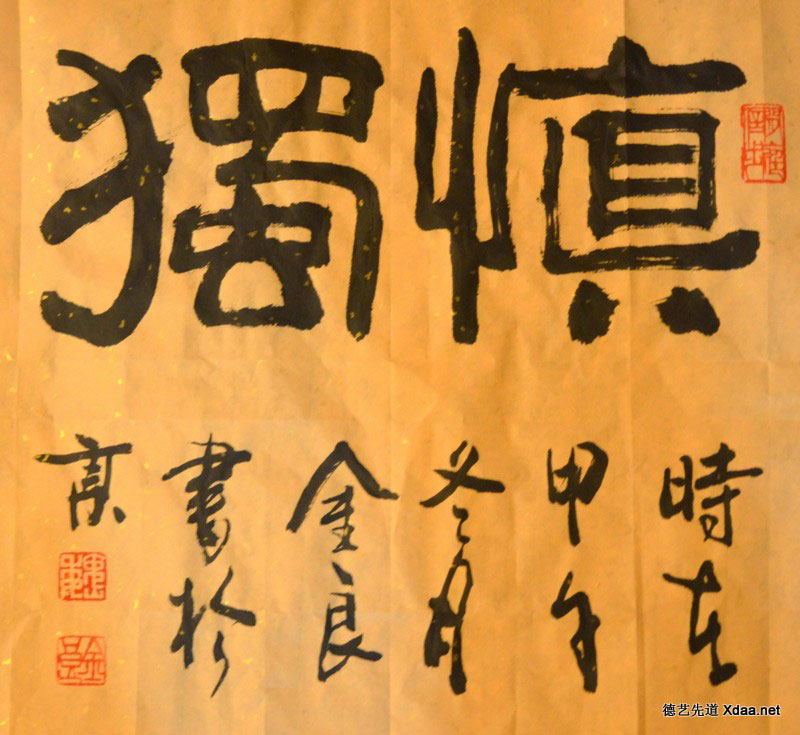 慎獨
時在
甲午
冬月
金良
書於
京
德艺先道 Xdaa.net